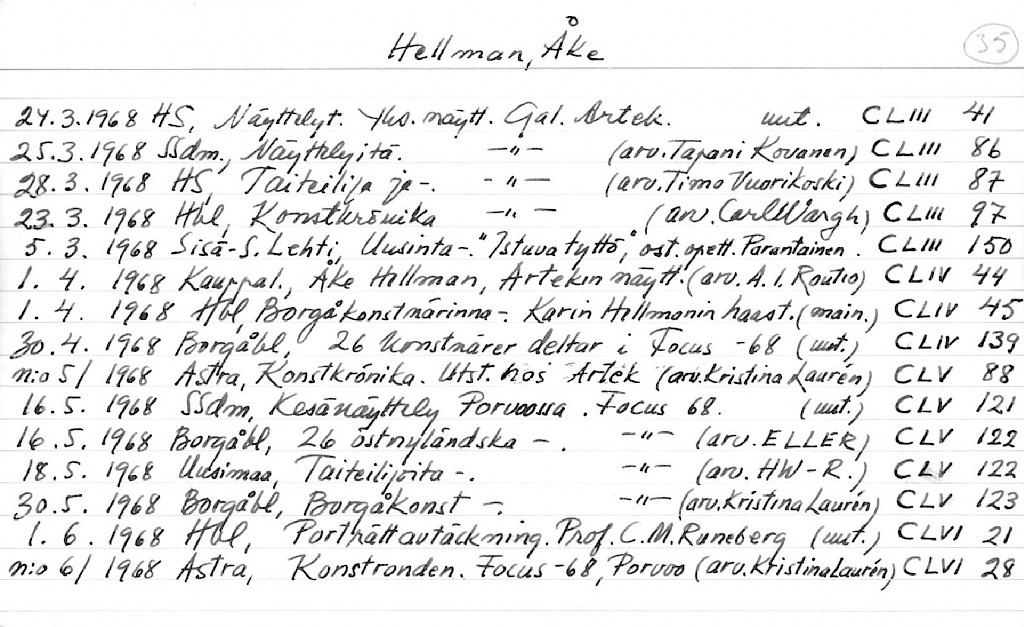 Hellman, Åke
35
24.3.1968 HS, Näyttelyt. Yks. näytt. Gal. Artek. uut. CLIII 41
25.3.1968 SSdm., Näyttelyitä. –"– (arv. Tapani Kovanen) CLIII 86
28.3.1968 HS, Taiteilija ja–. –"– (arv. Timo Vuorikoski) CLIII 87
23.3.1968 Hbl, Konstkrönika –"– (arv. Carl Wargh) CLIII 97
5.3.1968 Sisä-S. Lehti, Uusinta–. "Istuva tyttö", ost. opett. Parantainen. CLIII 150
1.4.1968 Kauppal., Åke Hellman, Artekin näytt. (arv. A.I. Routio) CLIV 44
1.4.1968 Hbl, Borgåkonstnärinna–. Karin Hellmanin haast. (main.) CLIV 45
30.4.1968 Borgåbl, 26 konstnärer deltar i Focus -68 (uut.) CLIV 139
n:o 5/1968 Astra, Konstkrónika. Utst. hos Artek (arv. Kristina Laurén) CLV 88
16.5.1968 SSdm, Kesänäyttely Porvoossa. Focus 68. (uut.) CLV 121
16.5.1968 Borgåbl, 26 östnyländska –. –"– (arv. ELLER) CLV 122
18.5.1968 Uusimaa, Taiteilijoita –. –"– (arv. HW-R.) CLV 122
30.5.1968 Borgåbl, Borgåkonst –. –"– (arv. Kristina Laurén) CLV 123
1.6.1968 Hbl, Porträttavtäckning. Prof. C.M. Runeberg (uut.) CLVI 21
n:o 6/1968 Astra, Konstronden. Focus -68, Porvoo (arv. Kristina Laurén) CLVI 28